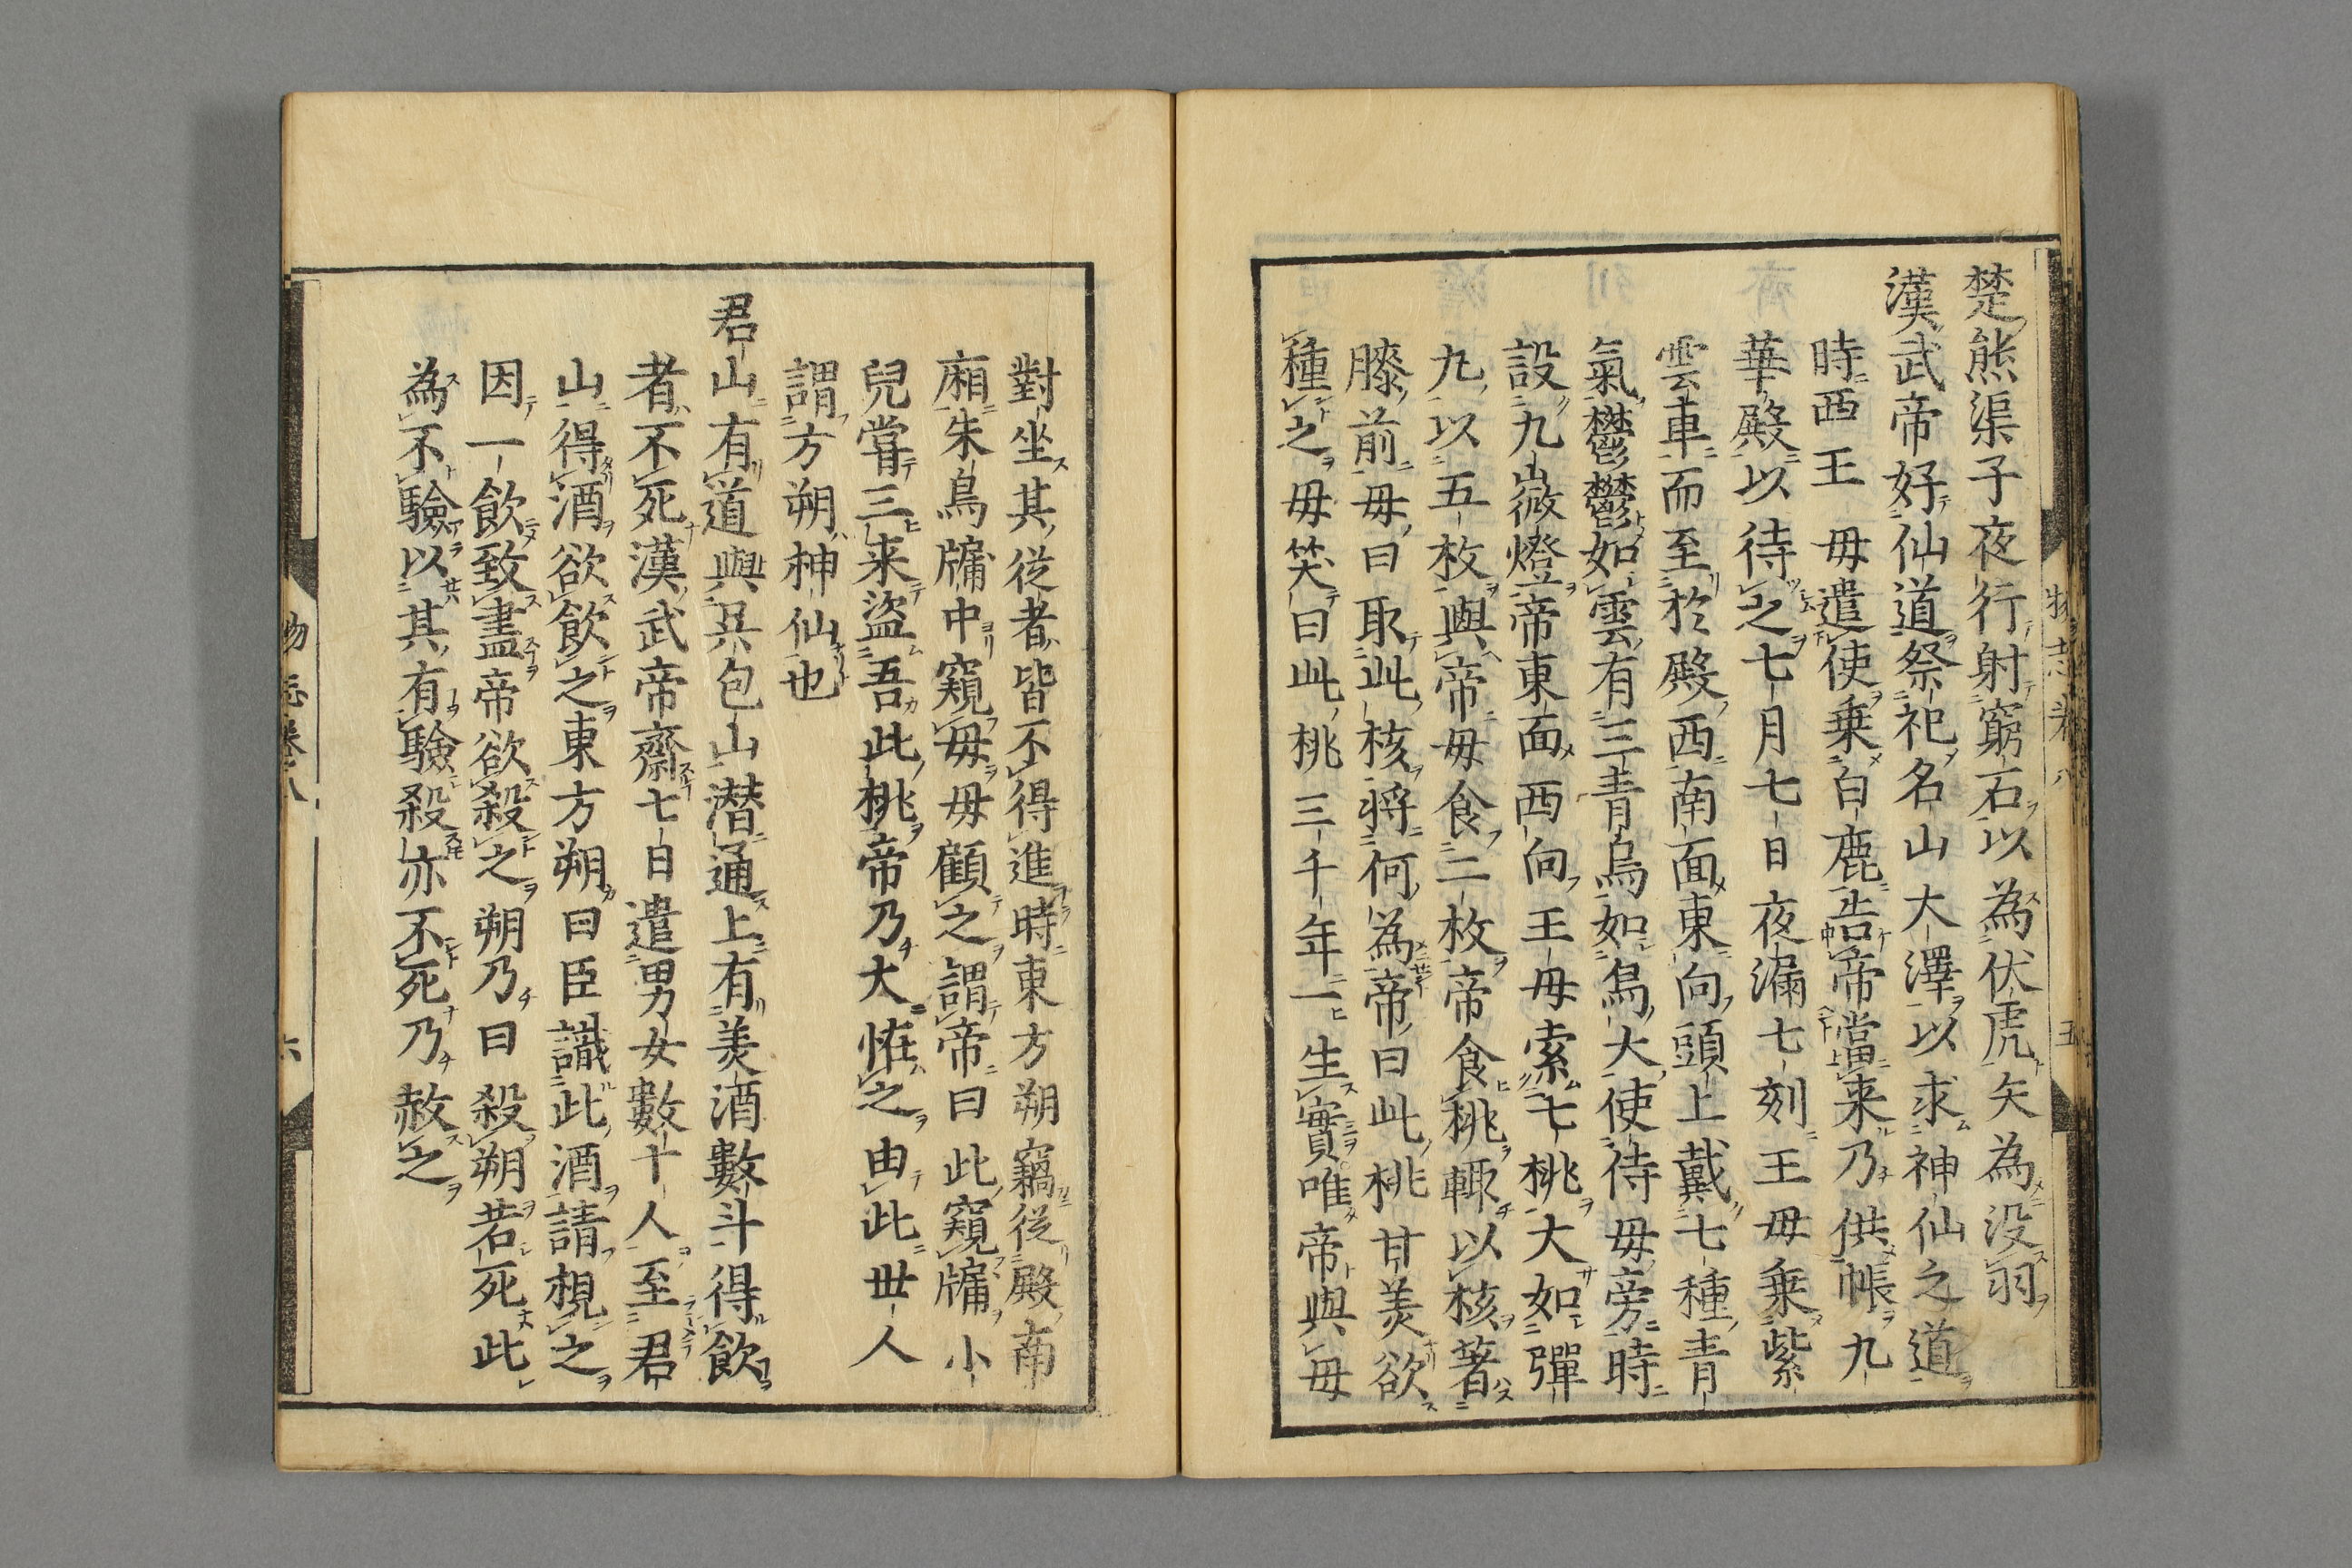 楚熊渠子夜行射窮石以為伏虎矢為没羽
漢武帝好仙道祭祀名山大澤以求神仙之道
時西王毋遣使乗白鹿告帝當来乃供帳九
華殿以待之七月七日夜漏七刻王毋乗紫
雲車而至於殿西南面東向頭上戴七種青
氣鬱鬱如雲有三青鳥如烏大使侍毋旁時
設九微燈帝東面西向王毋索七桃大如彈
九以五枚與帝毋食二枚帝食桃輙以核著
膝前毋曰取此核将何為帝曰此桃甘美欲
種之毋笑曰此桃三千年一生實唯帝與毋
物志卷八
五
對坐其從者皆不得進時東方朔竊從殿南
廂朱鳥牖中窺毋毋顧之謂帝曰此窺牖小
兒嘗三来盗吾此桃帝乃大恠之由此丗人
謂方朔神仙也
君山有道與吳包山潜通上有美酒數斗得飲
者不死漢武帝齋七日遣男女數十人至君
山得酒欲飲之東方朔曰臣識此酒請視之
因一飲致盡帝欲殺之朔乃曰殺朔若死此
為不驗以其有驗殺亦不死乃赦之
物志卷八
六